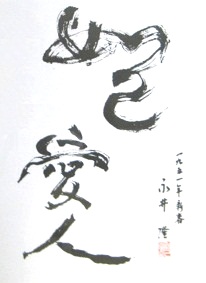 如己
愛人
一九五一年新春
永井隆